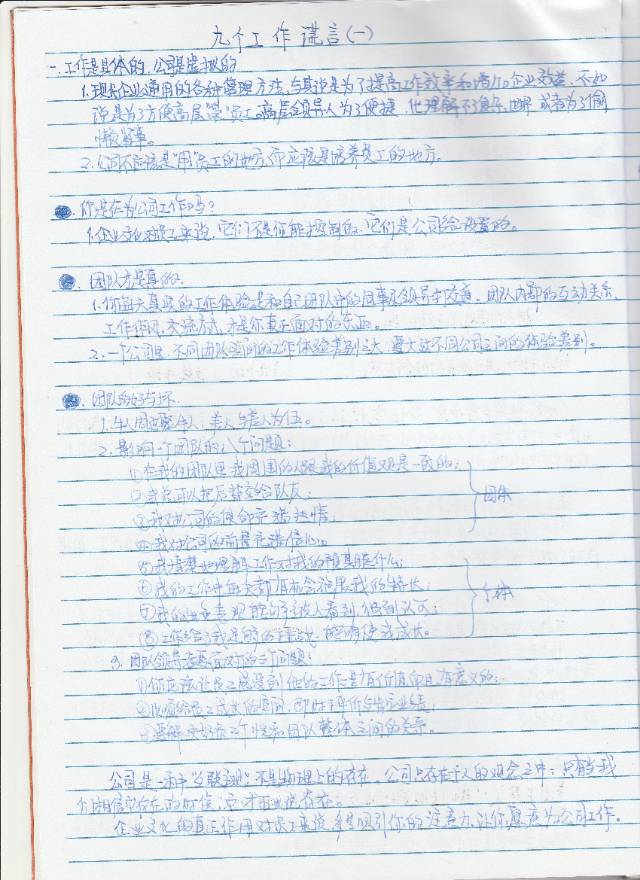 九个工作谎言(一)
一.工作是具体的,公司是虚拟的
1.现代企业通用的各种管理方法,与其说是为了提高工作效率和增加企业效益,不如
说是为了方便高层"管"员工。高层领导人为了便捷,他理解不了复杂,或者为了偷
懒省事。
2.公司不应该是"用"员工的地方,而应该是培养员工的地方。
你是在为公司工作吗?
1.企业文化对员工来说,它们不是你能控制的,它们是公司给设置的。
团队才是真的.
1.你每天真实的工作体验是和自己团队中的同事及领导在交道,团队内部的互动关系,
工作作风,交流方式,才是你真正面对的东西。
2.一个公司里,不同团队之间的工作体验差别之大,要大过不同公司之间的体验差别。
团队的好与坏.
1.牛人周边聚牛人,羊人与羊人为伍。
2.影响一个团队的八个问题:
①在我的团队里,我周围的人跟我的价值观是一致的;
②我可以把后背交给队友;
③我对公司的使命充满热情;
团体
④我对公司的前景充满信心。
⑤我清楚地理解工作对我的预期是什么;
⑥我的工作中每天都有机会发挥我的特长;
⑦我的出色表现能够被人看到,得到认可;
个体
⑧工作给了我足够的挑战,能够使我成长。
3.团队领导者要应对的三个问题:
①你应该让员工感受到他的工作是有价值而且有意义的;
③要解决好每个个体和团队整体之间的关系。
公司是一种"互联主观",不是物理上的存在,公司只存在于人的观念之中;只有当我
们相信它存在的时候,它才真正地存在。
企业文化的真正作用对员工来说,是吸引你的注意力,让你愿意为公司工作。